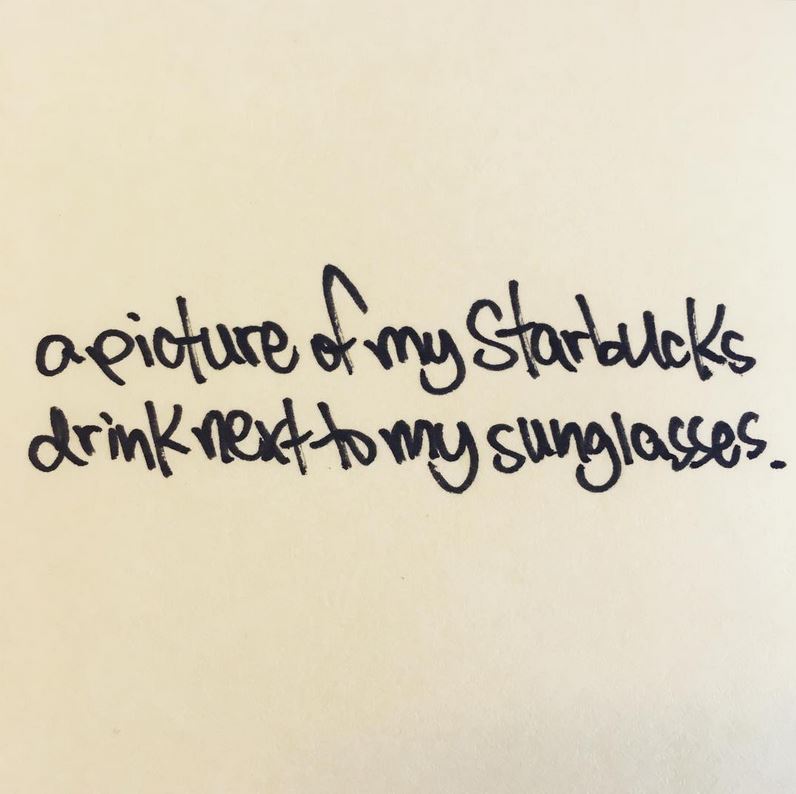 a picture of my Starbucks
drink next to my sunglasses.